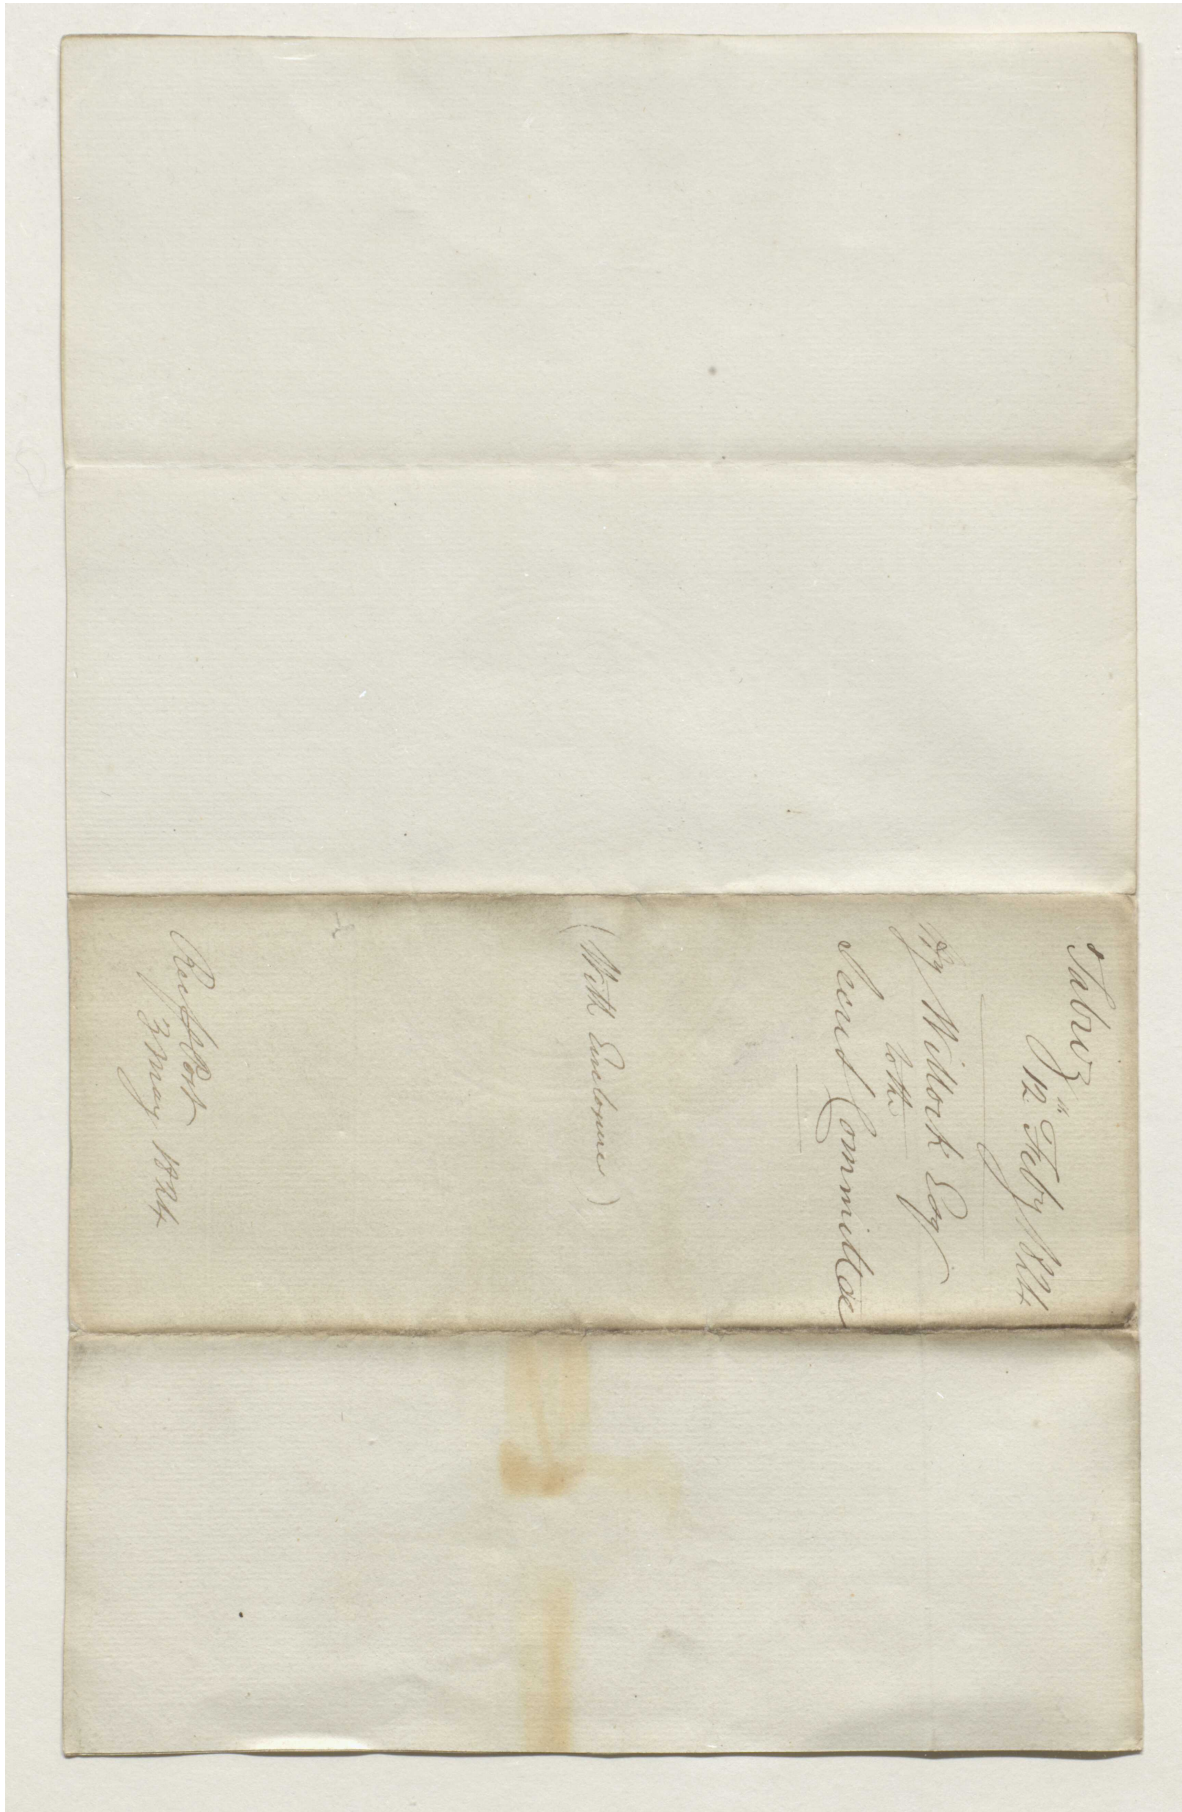 Tabriz
12th Feby 1824
Hy Willock Esq
to the
Secret Committee
(With Enclosure)
Rec p Post
3 May 1824